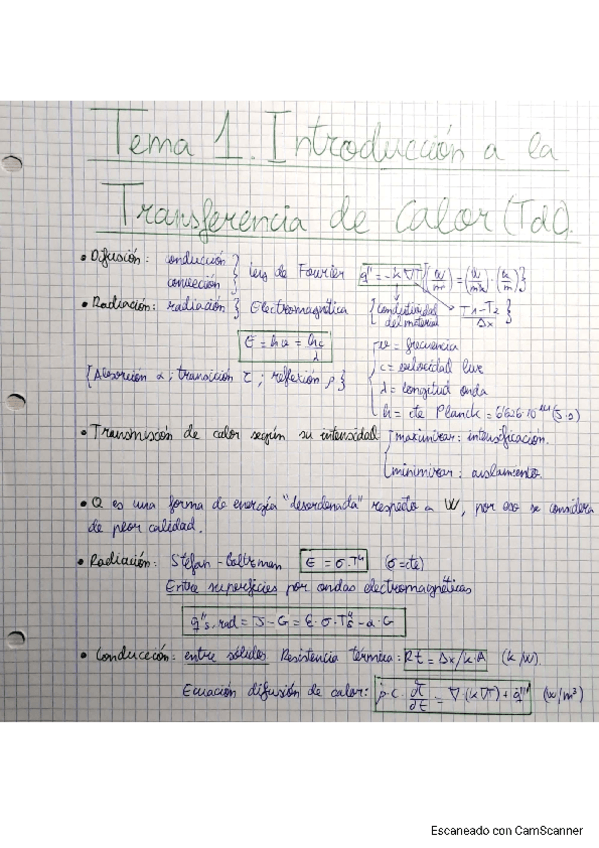 Tema 1. Introducción a la
Transferencia de Calor (TdC).
• Difusión: conducción } Ley de Fourier q'' = -k ∇T [(W/m²) = (W/mK)·(K/m)]
convección
• Radiación: radiación } Electromagnética [conductividad del material T1-T2/Δx }
E = hν = hc/λ
ν = frecuencia
c = velocidad luz
{Absorción α; transmisión τ; reflexión ρ}
λ = longitud onda
h = cte Planck = 6'626·10 (J·s)
• Transmisión de calor según su intensidad [maximizar: intensificación.
minimizar: aislamiento.
• Q es una forma de energía "desordenada" respecto a W, por eso se considera
de peor calidad.
• Radiación: Stefan-Boltzman E = σ·T⁴ (σ=cte)
Entre superficies por ondas electromagnéticas
q''s,rad = J-G = ε·σ·Ts⁴ - α·G
• Conducción: entre sólidos Resistencia térmica: Rt = Δx/k·A (k/W).
Ecuación difusión de calor: ρ·c·dT/dt = ∇(k∇T) + q''' (w/m³)
Escaneado con CamScanner